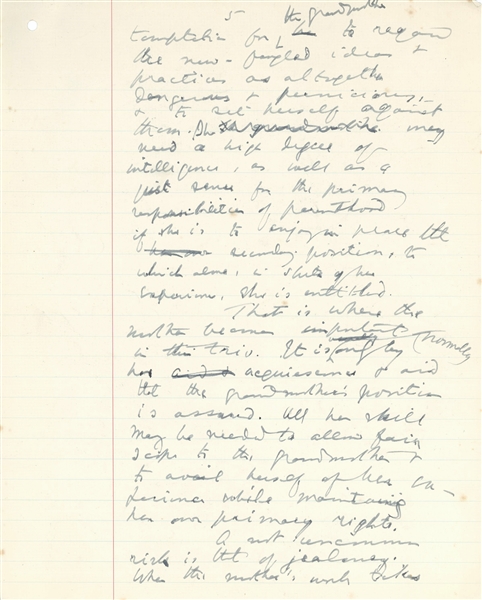 5 the grandmother
temptation for, to regard
the new-fangled ideas &
practices as altogether
dangerous & pernicious,
& to set herself against
them. She the grandmother may
need a high degree of
intelligence, as well as a
just sense for the primary
responsibilities of parenthood
if she is to enjoy in peace the
secondary position, to
which alone, in spite of her
experience, she is entitled.
That is where the
mother becomes important
in this trio. It is only by (normally)
her acquiescence & aid
that the grandmother's position
is assured. All her skill
may be needed to allow fair
scope to the grandmother &
to avail herself of her ex-
perience while maintaining
her own primary rights.
A not uncommon
risk is that of jealousy.
When the mother's work takes